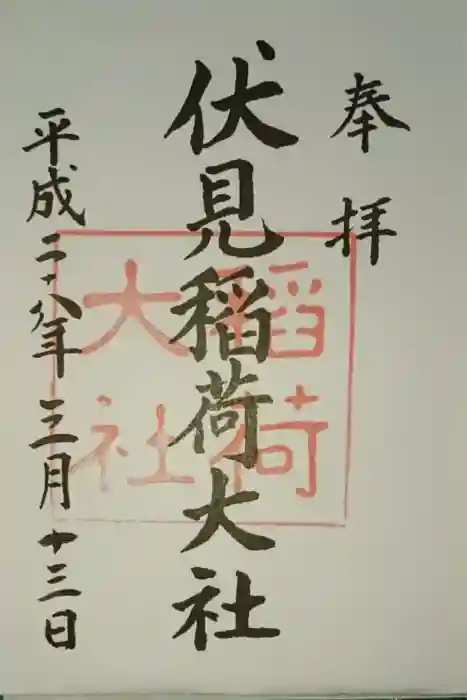 奉拝
伏見稲荷大社
平成二十八年三月十三日
稲荷
大社